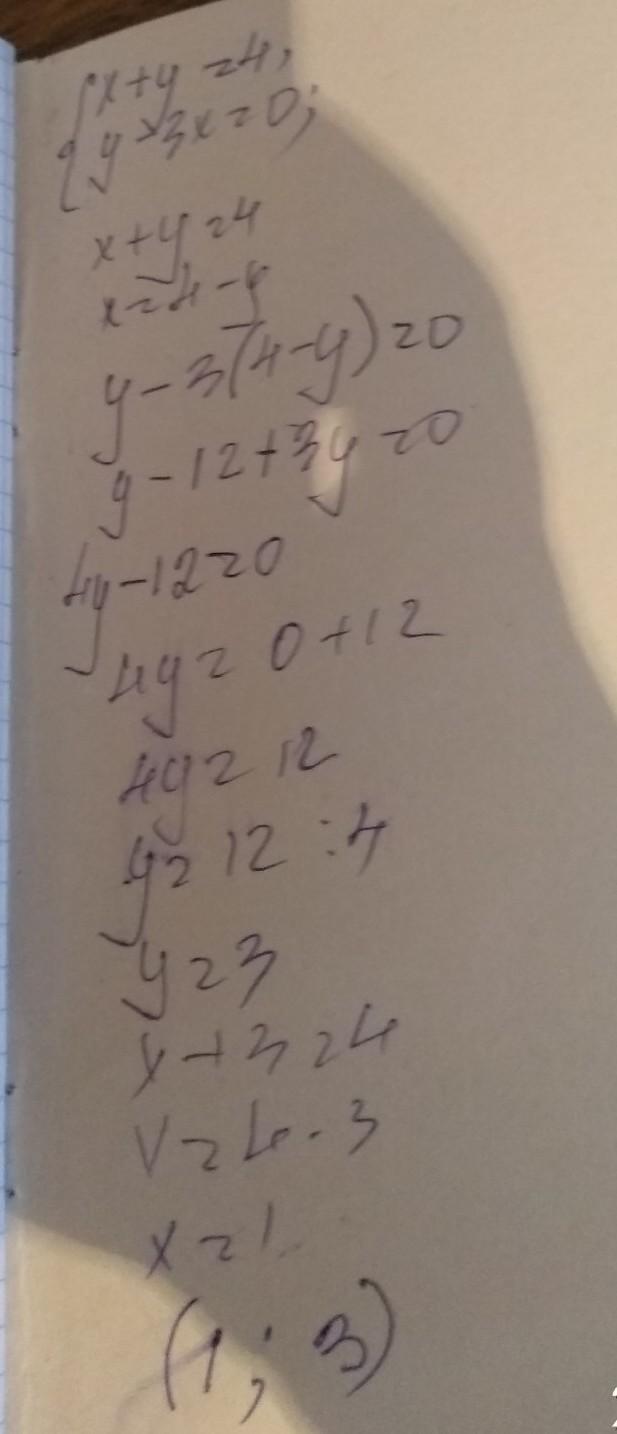 {x+y=4,
{y-3x=0;
x+y=4
x=4-y
y-3(4-y)=0
y-12+3y=0
4y-12=0
4y=0+12
4y=12
y=12:4
y=3
x+3=4
x=4-3
x=1
(1; 3)